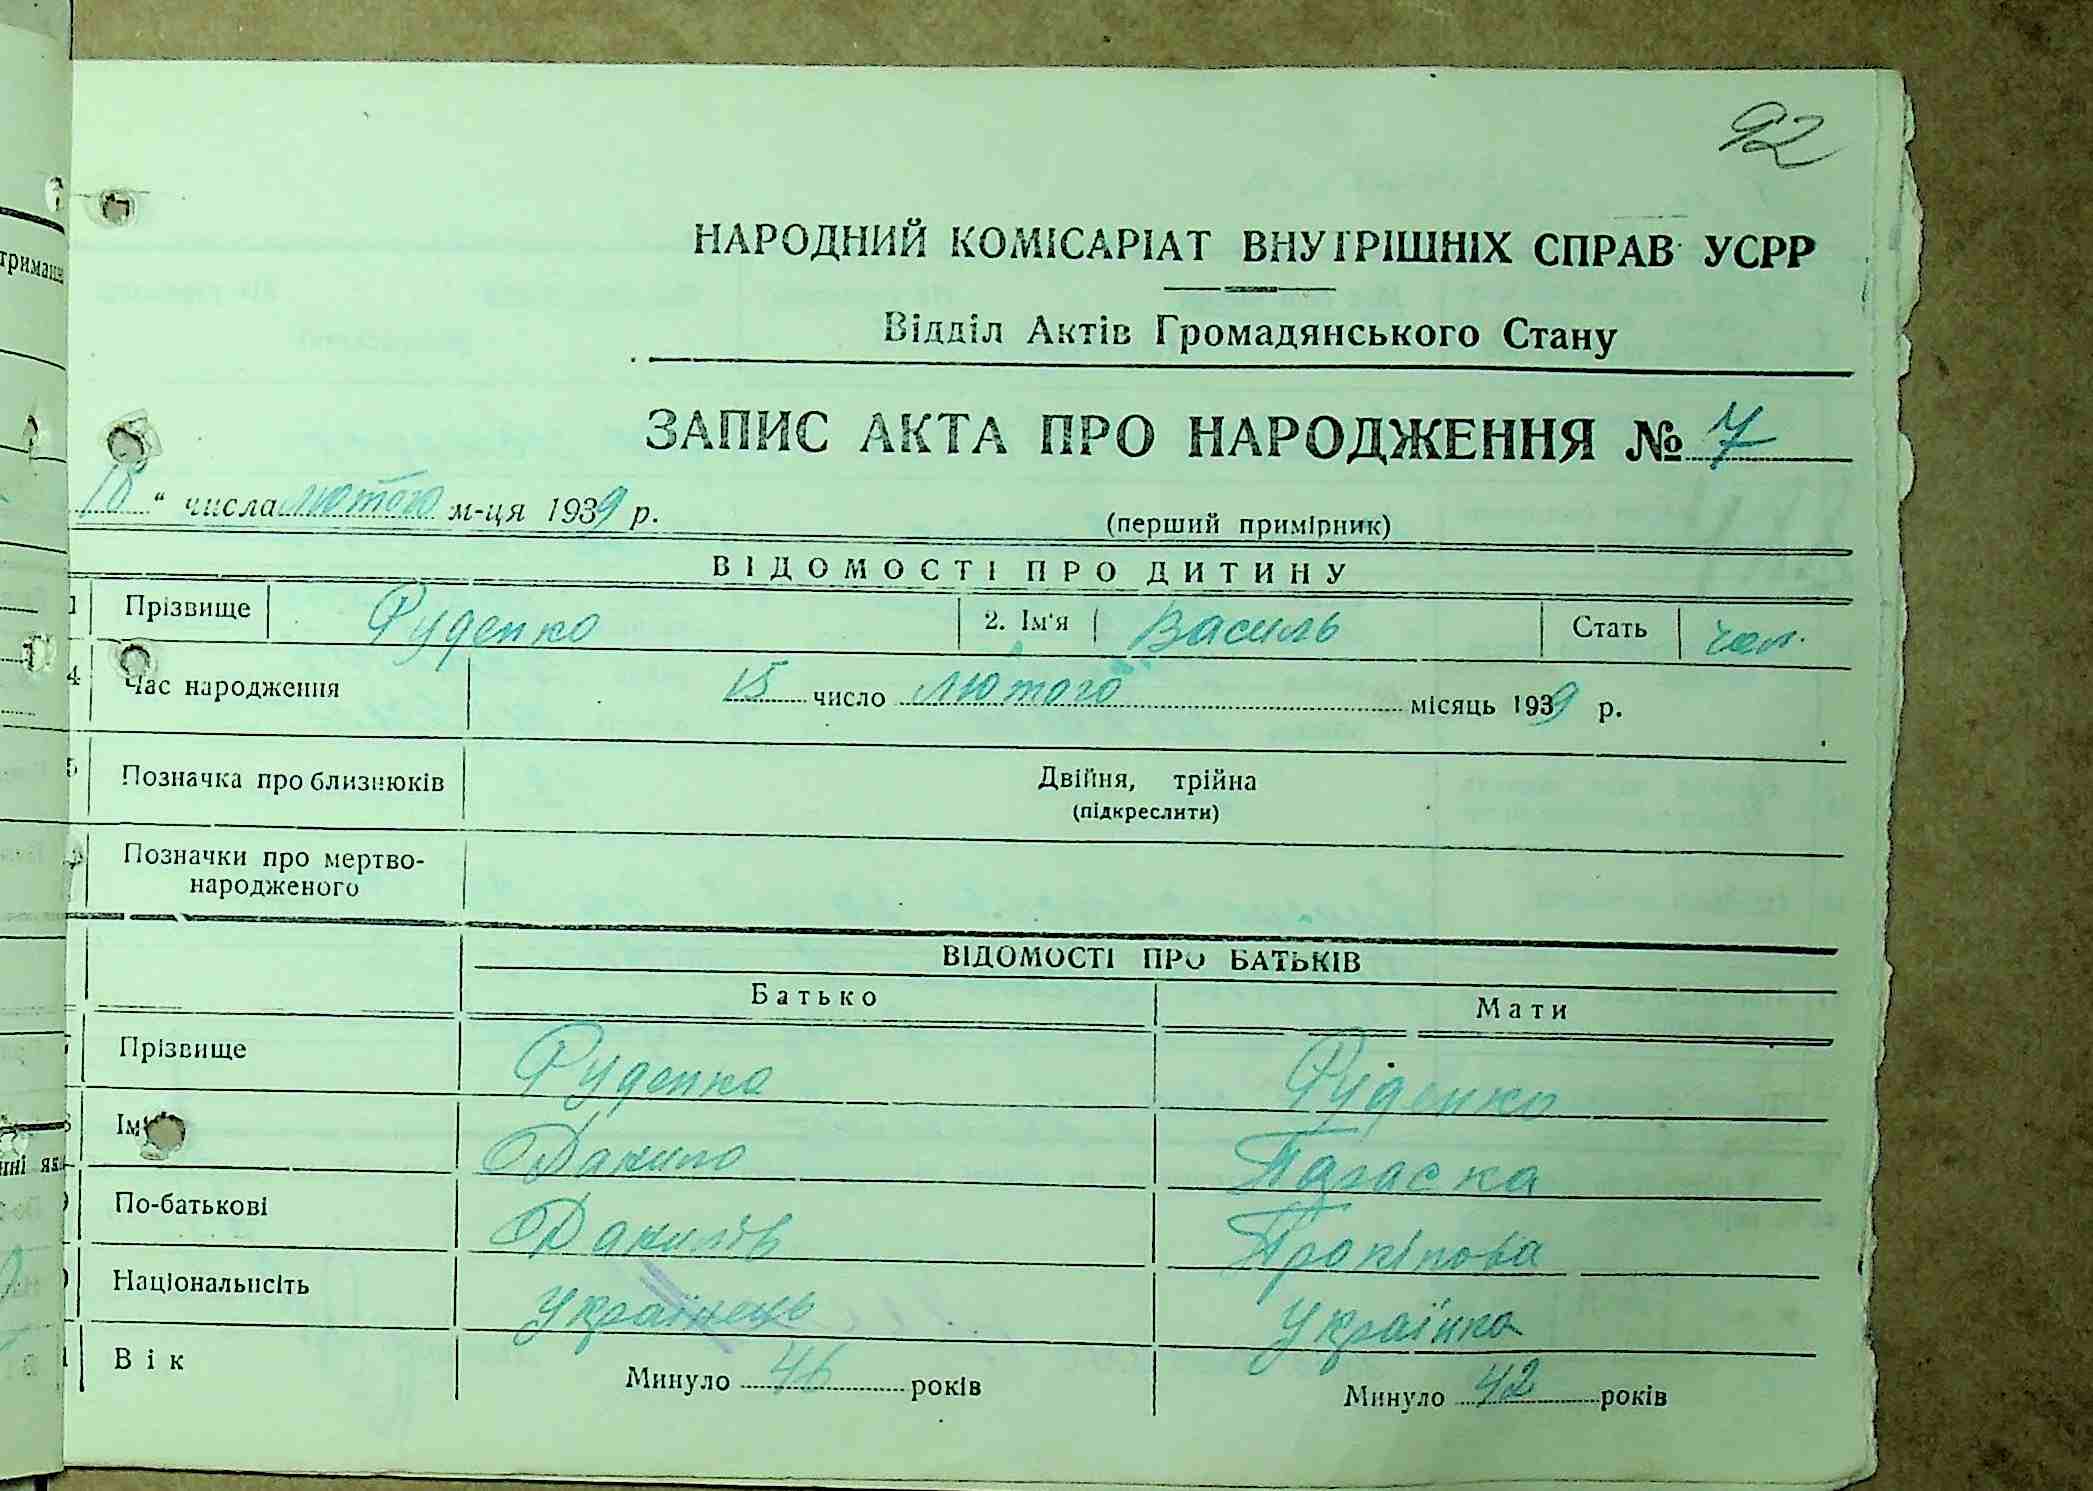 92
НАРОДНИЙ КОМІСАРІАТ ВНУТРІШНІХ СПРАВ УСРР
Відділ Актів Громадянського Стану
ЗАПИС АКТА ПРО НАРОДЖЕННЯ № 7
18 " числа лютого м-ця 1939 р.
(перший примірник)
ВІДОМОСТІ ПРО ДИТИНУ
1 Прізвище Руденко 2. Ім'я Василь Стать чол.
4 Час народження 15 число лютого місяць 1939 р.
5 Позначка про близнюків Двійня, трійна
(підкреслити)
Позначки про мертво-
народженого
ВІДОМОСТІ ПРО БАТЬКІВ
Батько Мати
Прізвище Руденко Руденко
Ім' Данило Параска
По-батькові Данилів Прокіпова
Національність Українець Українка
Вік Минуло 46 років Минуло 42 років